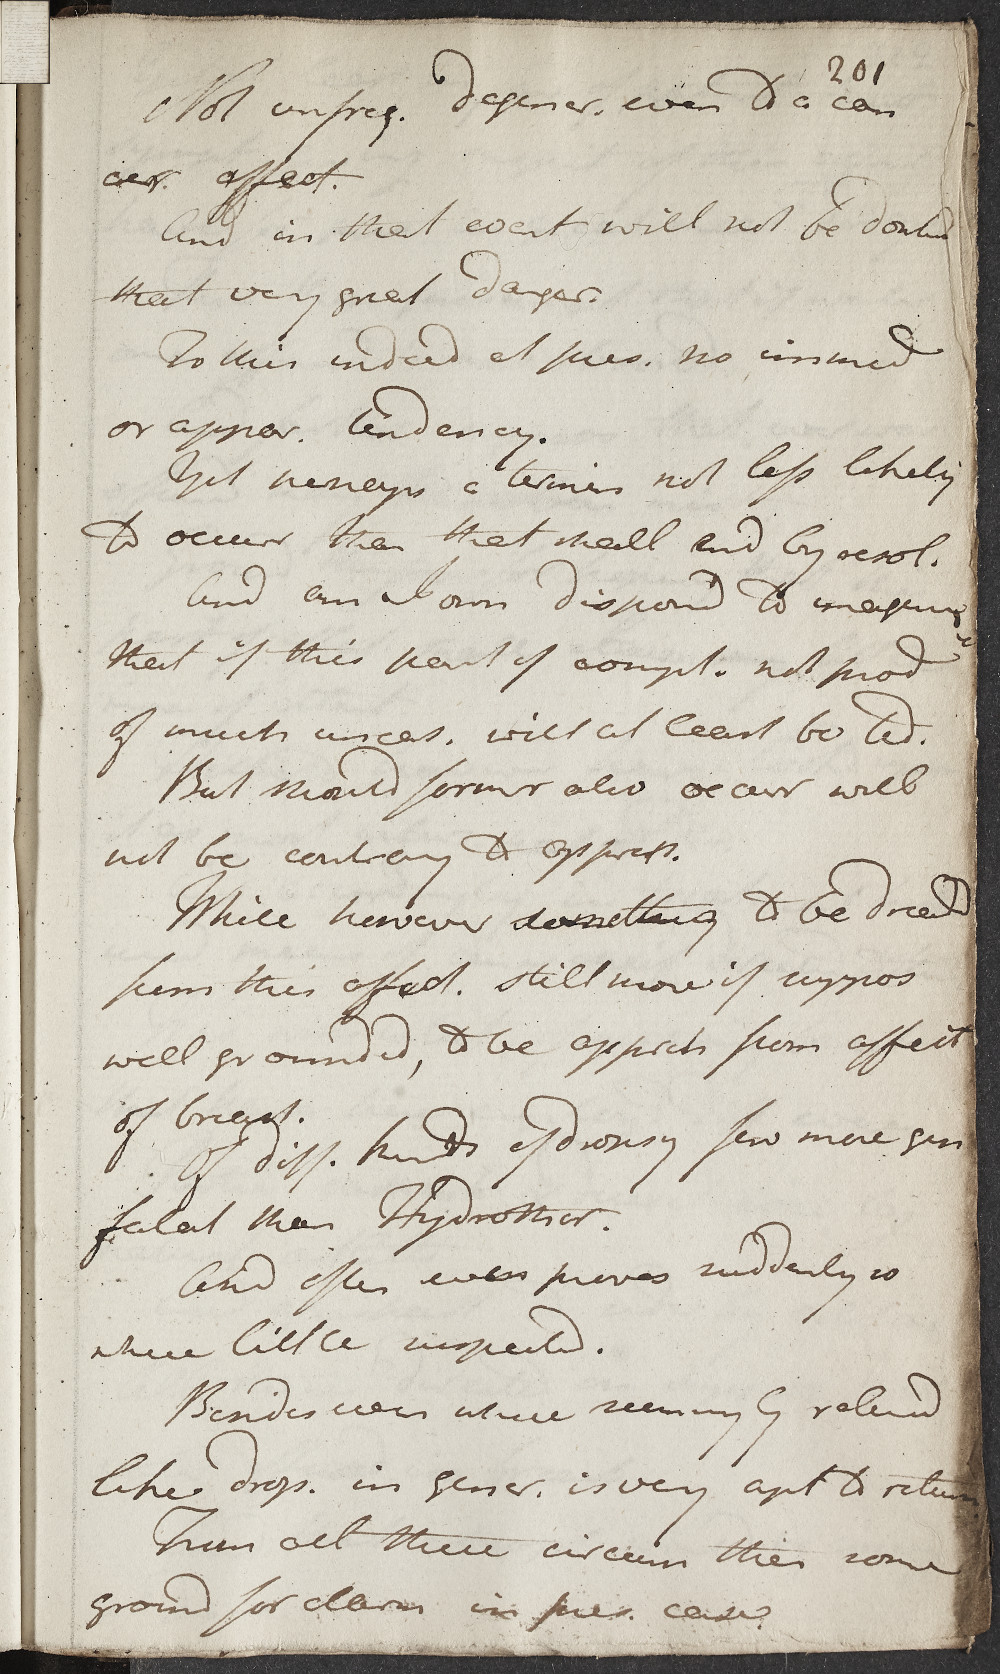 201
Not unfreq. degener. even to a can
cer. affect.
And in that event will not be doubted
that very great danger.
To this indeed at pres. no immed
or appar. tendency.
Yet perhaps a termin not less likely
to occurr than that shall end by resol.
And am I own disposed to imagine
that if this part of compl. not prod
of much uneas. will at least be ted.
But should former also occurr will
not be contrary to appreh.
While however something to be dreaded
from this affect. still more if suppos
well grounded, to be appreh from affect
of breast.
Of diff. kinds of dropsy few more gen
fatal than Hydrothor.
And often even proves suddenly so
where little suspected.
Besides even where seemingly relieved
like drops. in gener. is very apt to return
From all these circum then some
ground for alarm in pres. case.